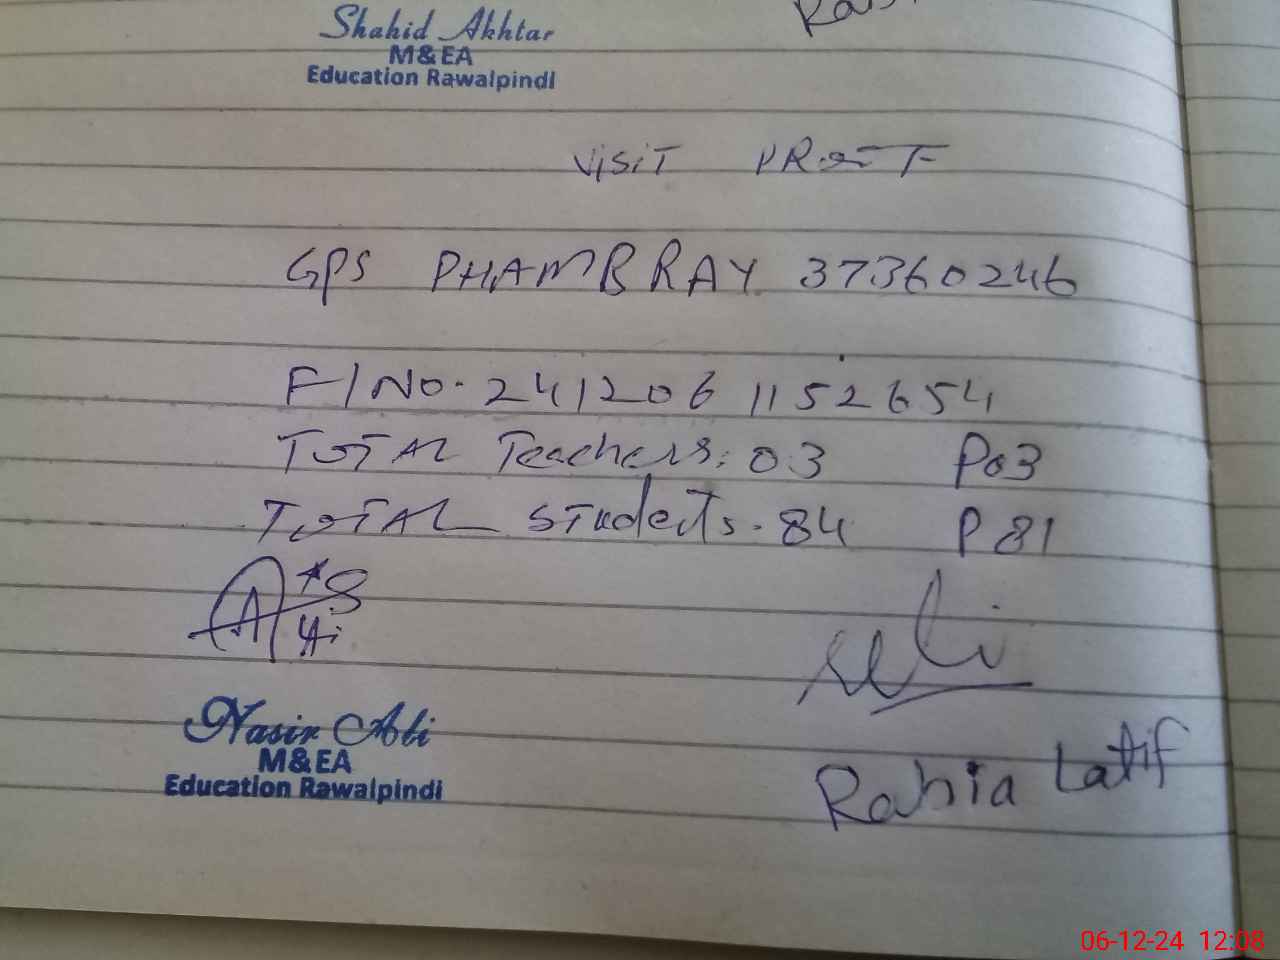 Shahid Akhtar
M&EA
Education Rawalpindi
VISIT PROOF
GPS PHAMBRAY 37360246
F/No. 241206 1152654
TOTAL Teachers: 03 P03
TOTAL Students. 84 P 81
Nasir Ali
M&EA
Education Rawalpindi
Rabia Latif
06-12-24 12:08